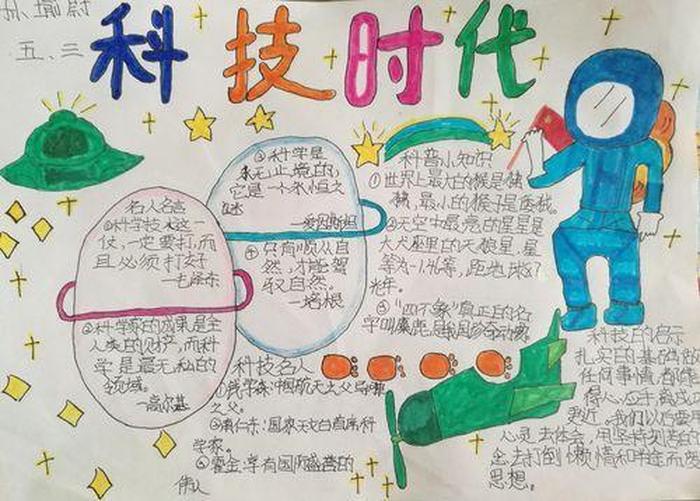 五、三
科技时代
名人名言
①科学技术这一
仗,一定要打,而
且必须打好
—毛泽东
②科学家的成果是全
人类的财产,而科
学是最无私的
领域。
—高尔基
③科学是
永无止境的
它是一个永恒之
谜
—爱因斯坦
④只有顺从自
然,才能驾
驭自然。
—培根
科普小知识
①世界上最大的猴是
,最小的猴子是
②天空中最亮的星星是
大犬座里的天狼星,星
等为-1.46等,距地球8.7
光年。
③"四不象"真正的名
字叫麋鹿,是我国珍奇动物。
科技名人
①钱学森:中国航天之父导弹
之父。
②南仁东:国家天文台首席科
学家。
③霍金:享有国际盛誉的
伟人
科技的启示
扎实的基础能使
任何事情都能
得心应手,
我们以后要
心灵去体会,用坚持刻苦的
去打倒懒惰和
思想。